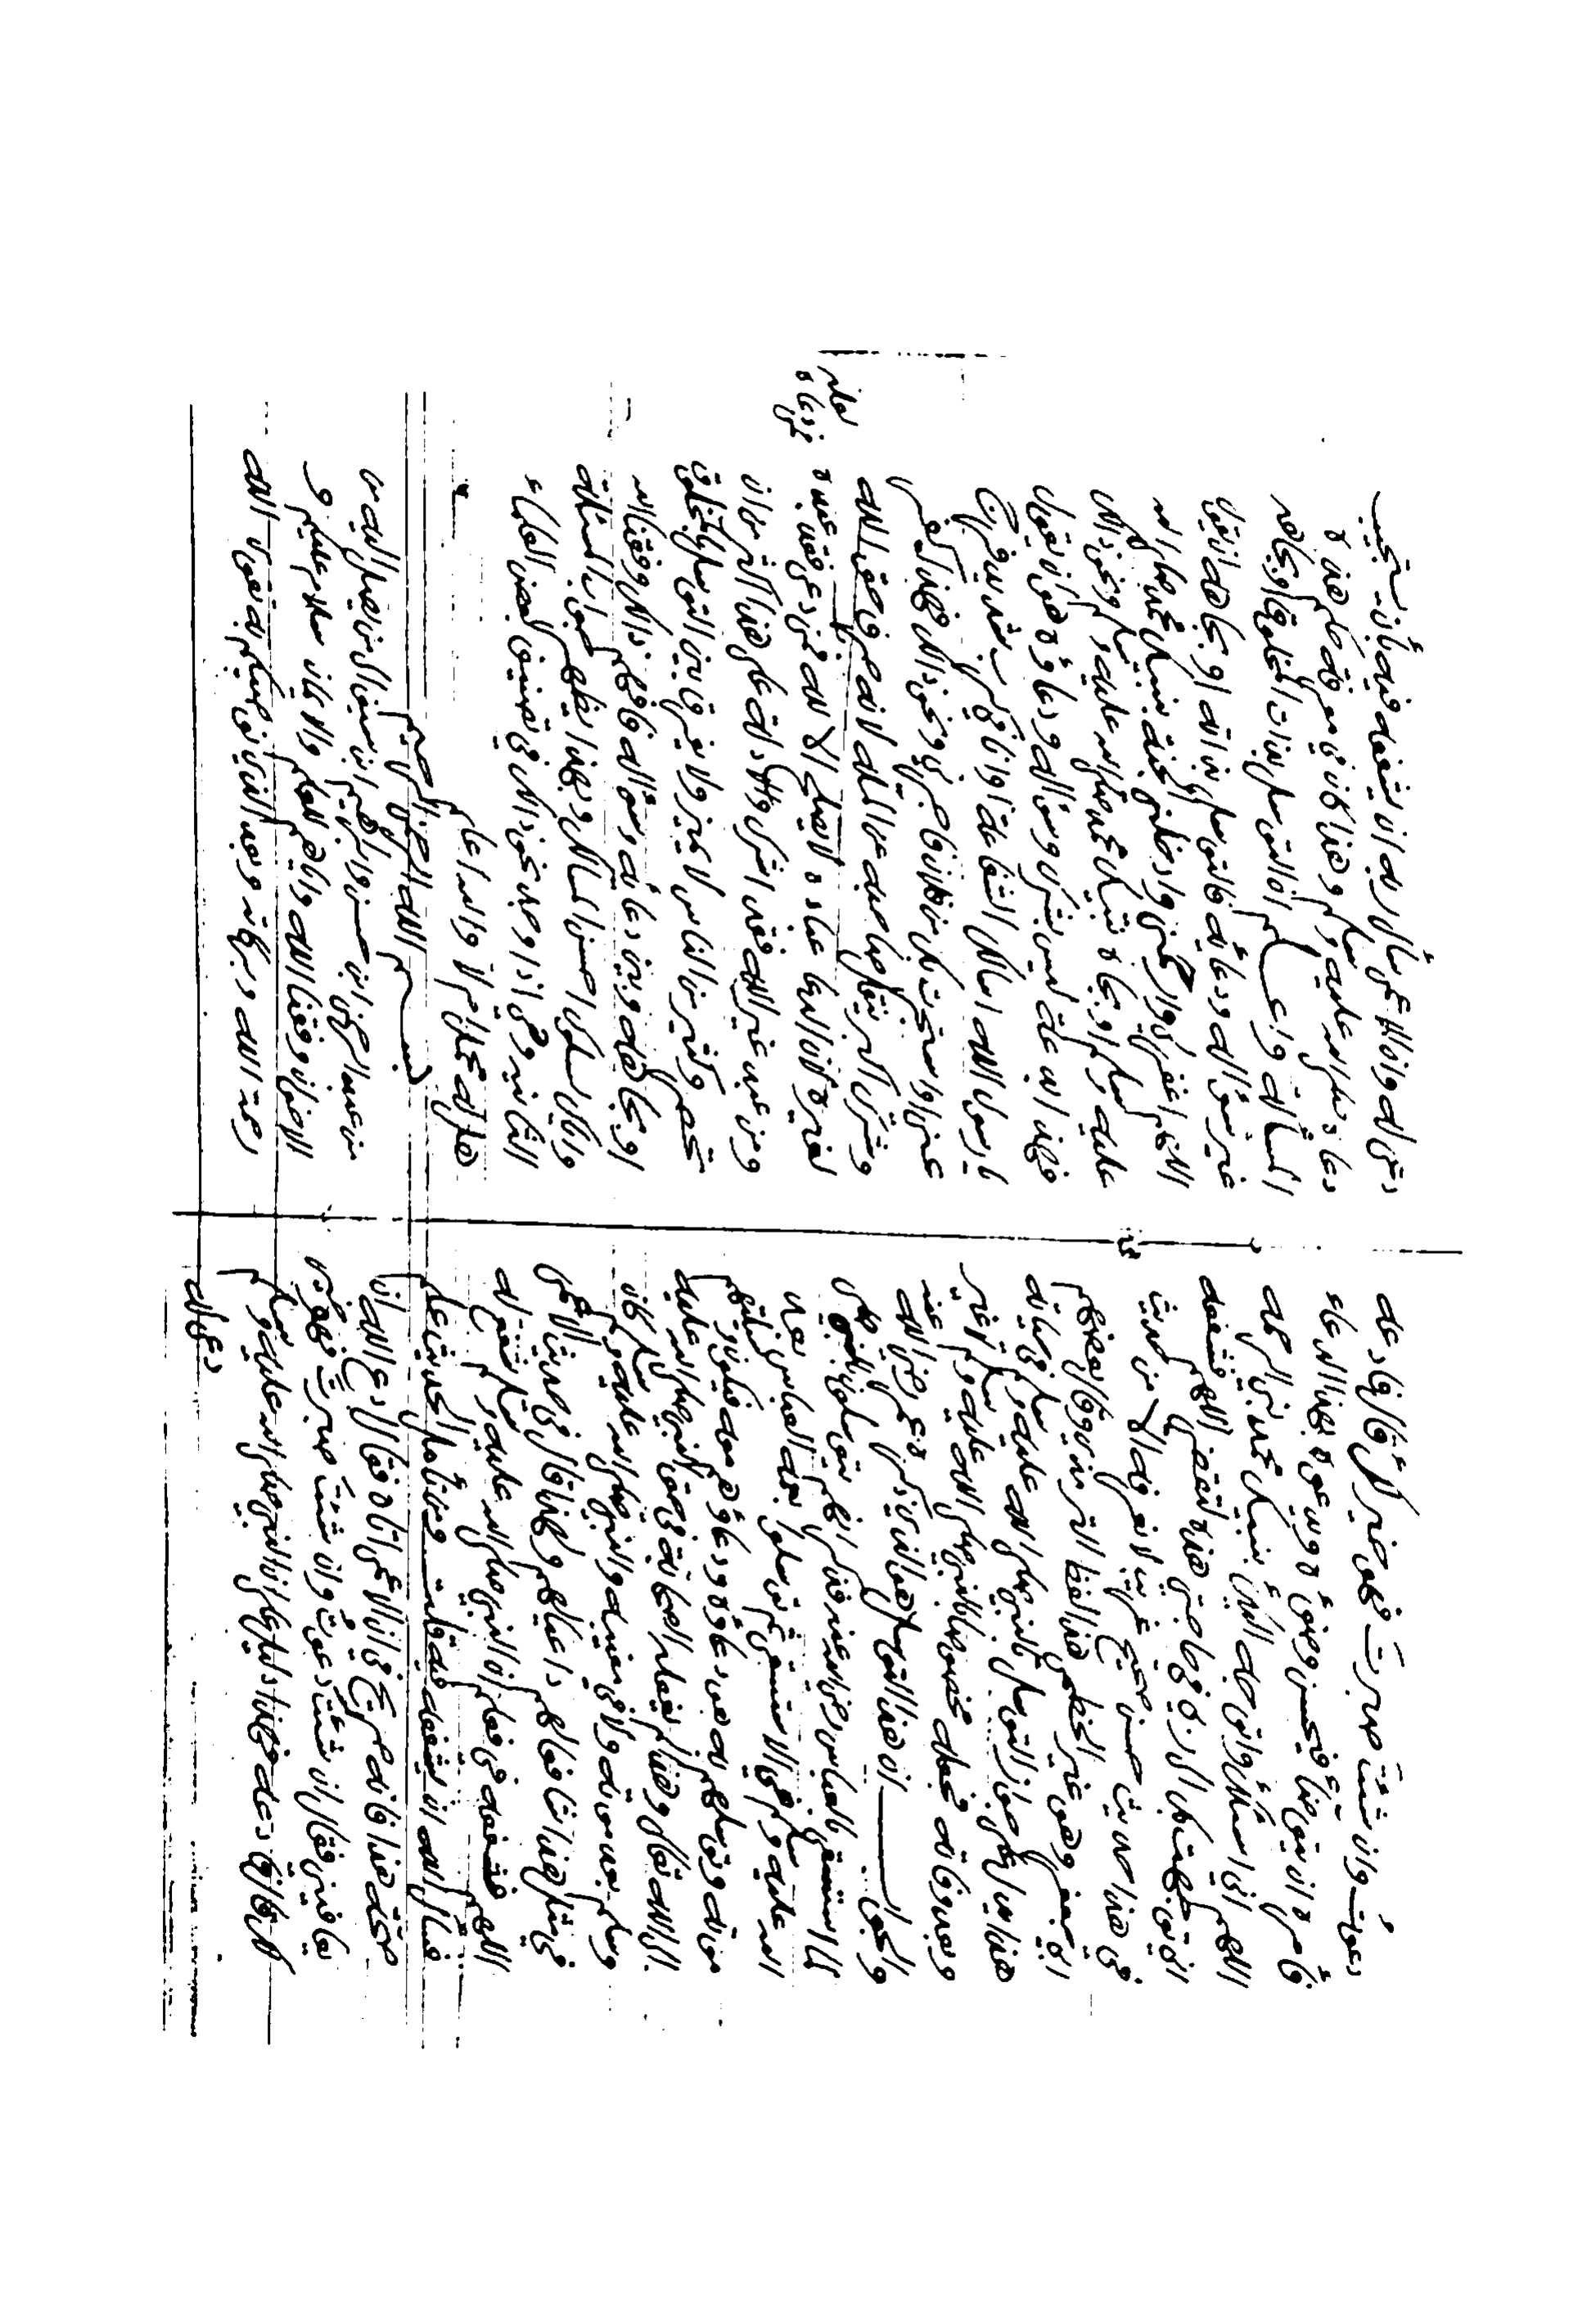 دعوت وان شئت صبرت فهو خير لك قال فادعه
فامره ان يتوضأ فيحسن وضوءه ويدعو بهذا الدعاء
اللهم اني اسئلك واتوجه اليك بنبيك محمد نبي الرحمه
اني توجهت بك الى ربي في حاجتي هذه لتقضى اللهم فشفعه
في هذا حديث حسن صحيح غريب لا نعرفه الا من حديث
ابي جعفر وهو غير الخطمي هذا لفظ الترمذي وقال بعضهم
هذا يدل على جواز التوسل بالنبي صلى الله عليه وسلم في حياته
وبعد وفاته بالنبي صلى الله عليه وسلم
والجواب ان هذا التوسل هو الذي ذكره عمر رضي الله عنه
لما استسقى بالعباس رضي الله عنه فذكر انهم يتوسلون بالنبي صلى
الله عليه وسلم في الاستسقى ثم توسلوا بعمه العباس بعد
موته وتوسلهم به هو دعاؤه ودعاؤهم معه فيكون وسيلتهم
الى الله تعالى وهذا لم يفعله الصحابة في حق النبي صلى الله عليه
وسلم بعد موته ولا في مغيبه والنبي صلى الله عليه وسلم كان
في مثل هذا شافعا لهم داعيا لهم ولهذا قال في حديث الاعمى
اللهم فشفعه في فعلم ان النبي صلى الله عليه وسلم شفع له
فسأل الله ان يشفعه فيه قلت ومن تأمل الحديث علم
صحة هذا فانه صريح في ان الاعمى اتاه فقال ادع الله ان
يعافيني فقال ان شئت دعوت وان شئت صبرت فهو خير
لك قال فادعه فهذا دليل على ان النبي صلى الله عليه وسلم
دعى له
دعى له وان الاعمى سأل ربه ان يشفعه فيه بان يستجيب
دعاء صلى الله عليه وسلم وهذا كان في هذه
المسألة واعلم ان التوسل بذات المخلوق او بجاهه
غير سؤاله ودعائه فالتوسل بذاته او بجاهه ان يقول
اللهم اغفر لي وارحمني وادخلني الجنة بنبيك محمد صلى الله
عليه وسلم او بجاه نبيك محمد صلى الله عليه وسلم ونحو ذلك
فهذا بدعة ليس بشرك وسؤاله ودعاؤه هو ان يقول
يا رسول الله اسألك الشفاعة وانا في كرب شديد فرج
عني او استجرت بك من فلان فاجرني ونحو ذلك فهذا كفر
وشرك اكبر ينقل صاحبه عن الملة لانه صرف حق الله
لغيره لان الدعاء عبادة لا يصلح الا لله فمن دعى فقد عبده
ومن عبد غير الله فقد اشرك والادلة على هذا اكثر من ان
تحصر وكثير من الناس لا يميز ولا يفرق بين التوسل بالمخلوق
او بجاهه وبين دعائه وسؤاله فافهم ذلك وفقنا الله
واياك لسلوك احسن المسالك وبهذا يظهر جواب المسألة
الثانية وهي اذا وجد نحو ذلك في تصنيف لبعض العلماء
هل له محمل ام لا والله اعلم
بسم الله الرحمن الرحيم
من عبد الرحمن ابن حسن وابراهيم ابن سيف الى من يصل اليه من
الاخوان وفقنا الله واياهم للعلم والايمان سلام عليكم و
رحمة الله وبركاته وبعد